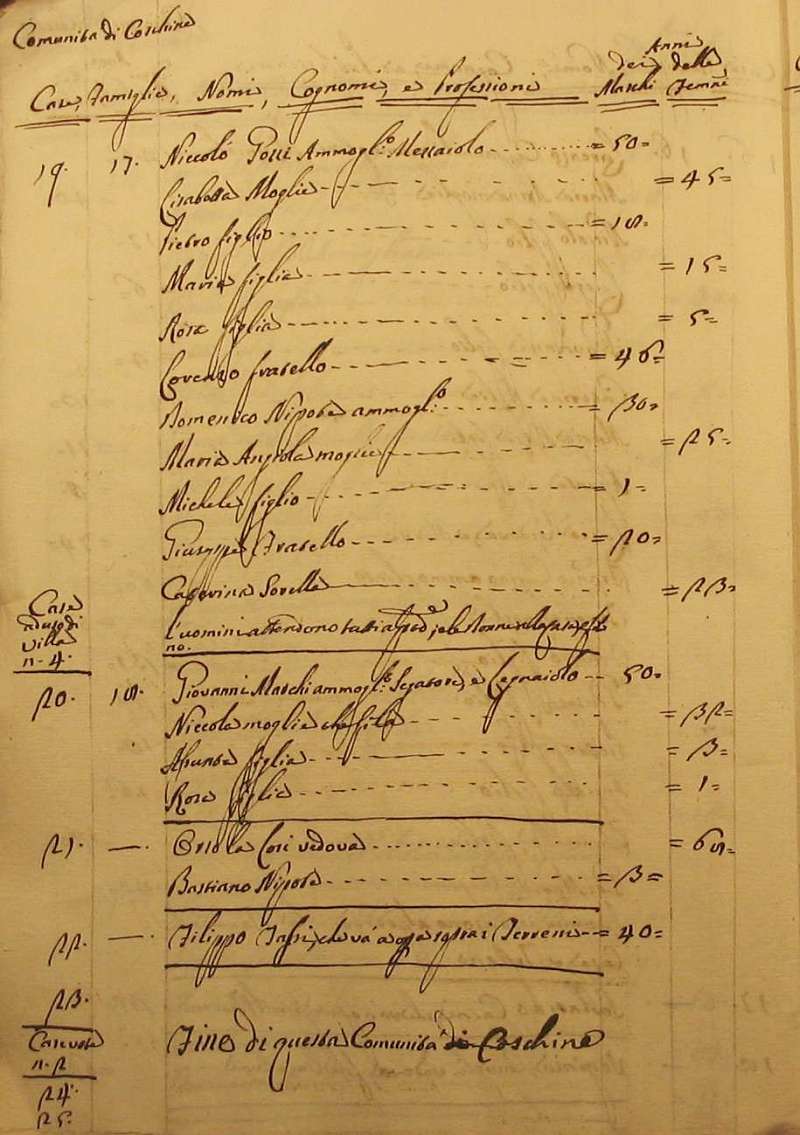 Comunità di Coschine
Anni
dei delle
Case, Famiglie, Nomi, Cognomi, e Professioni Maschi Femine
19. 17. Niccoló Possi Ammogl.o Messaiolo = 50 =
Lisabetta Moglie = 45 =
Pietro figlio = 18 =
Maria figlia = 15 =
Rosa figlia = 5 =
Lorenzo fratello = 46 =
Domenico Nipote ammogl.o = 30 =
Maria Angiola moglie = 25 =
Michele figlio = 1 =
Giuseppe Fratello = 20 =
Caterina Sorella = 23 =
Case
ad uso di
villa
n. 4.
l'uomini attendono e le Donne
no.
20. 18. Giovanni Maschi ammogl.o Segatore, e Legnaiolo 50 =
Niccola moglie che fila = 32 =
Assunta figlia = 3 =
Rosa figlia = 1 =
21. — Orsola Cori vedova = 68 =
Bastiano Nipote = 3 =
22. — Filippo Tassi, che và a opera per i Terreni = 40 =
23.
Case vote
n. 2
24.
25.
Fine di questa Comunità di Coschine